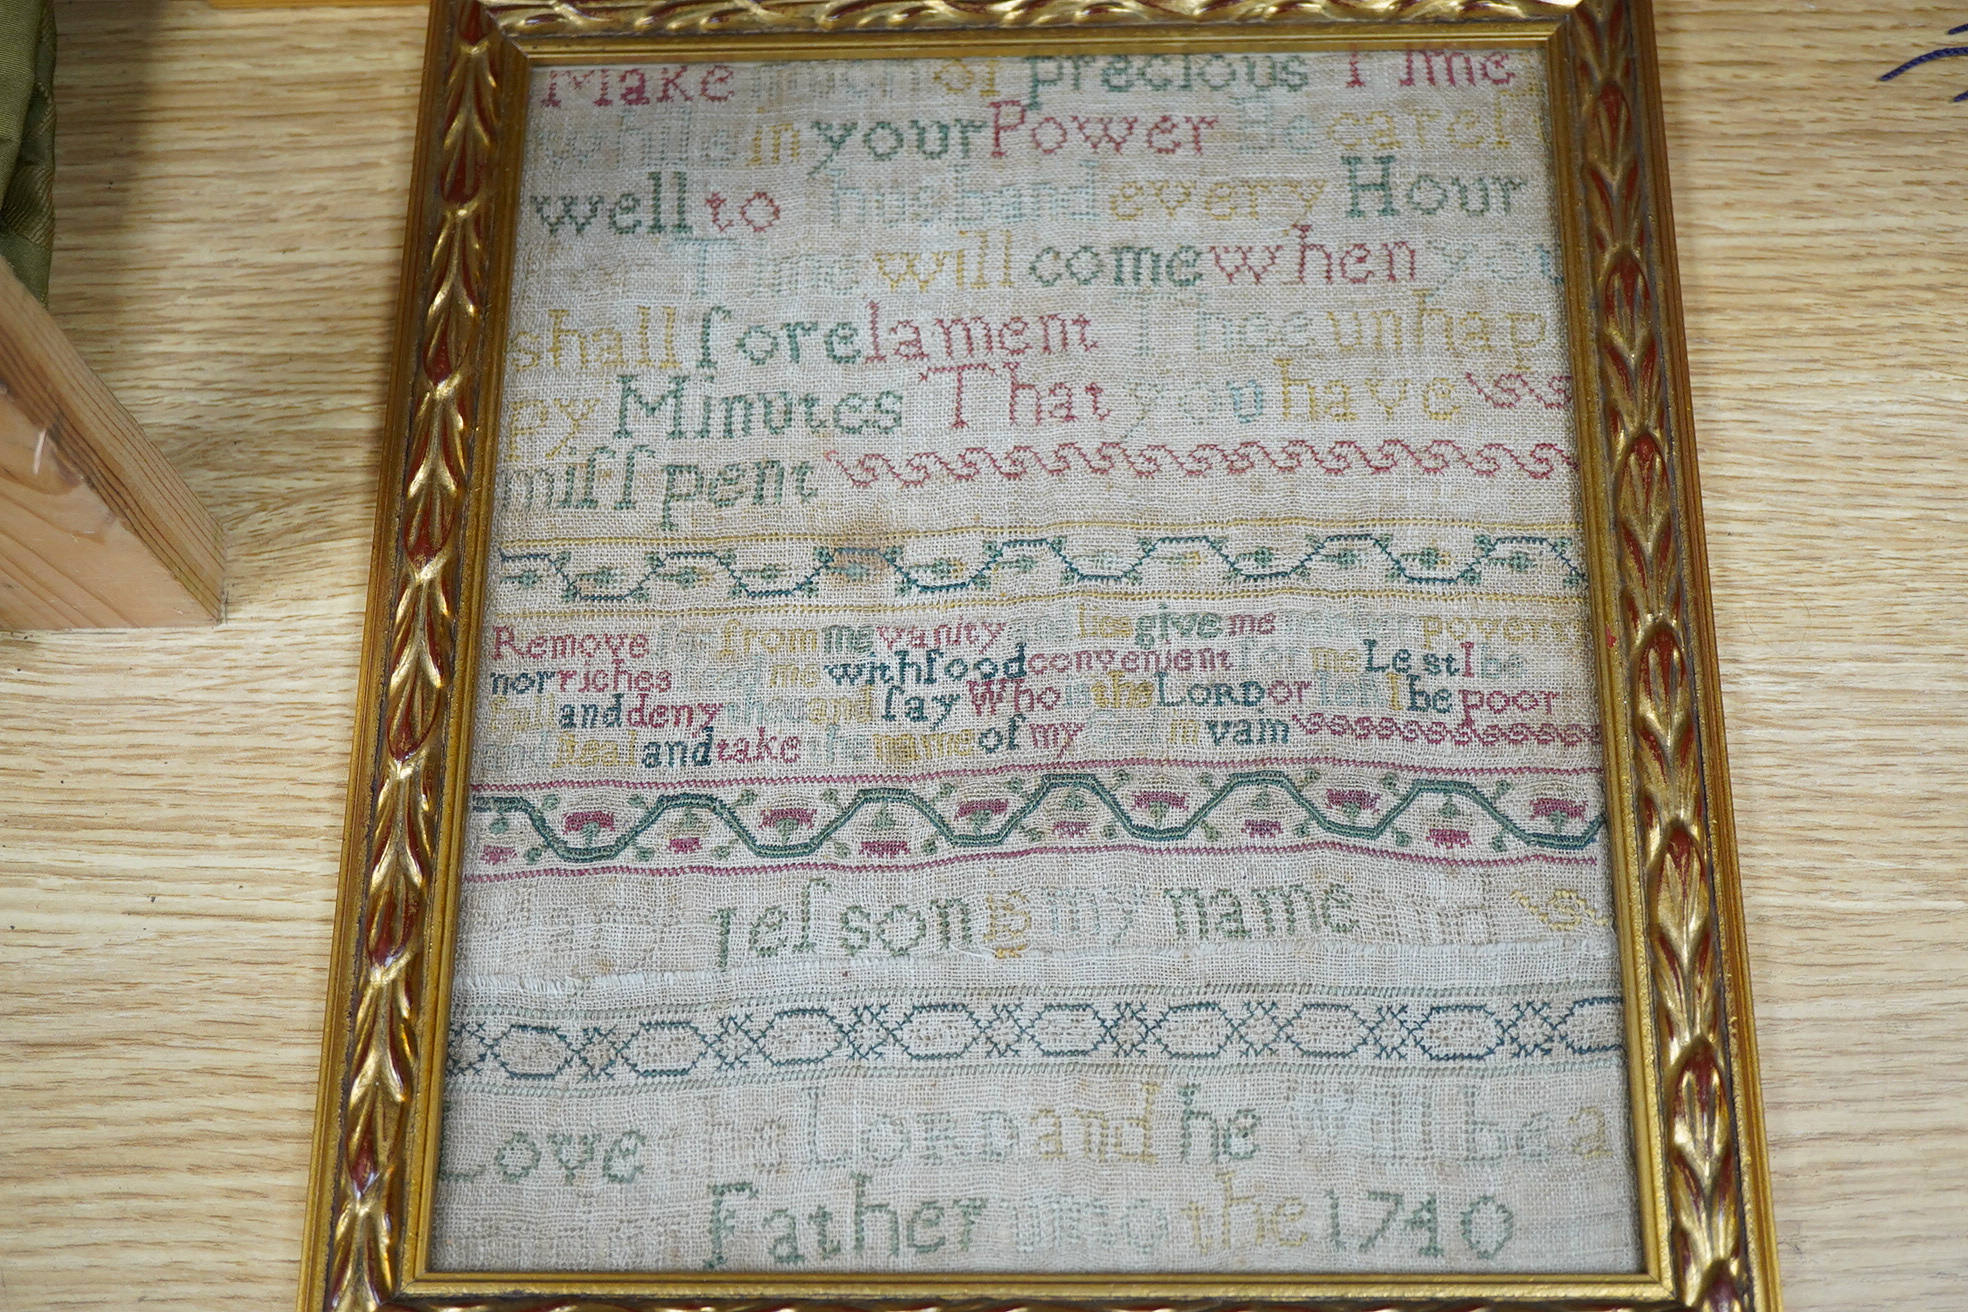 Make much of precious Time
while in your Power Be carefſ
well to husband every Hour
for Time will come when you
shall ſore lament Thee unhap
py Minutes That you have
miſſpent
Remove far from me vanity and lies give me neither poverty
nor riches feed me with ſood convenient for me Lest I be
full and deny thee and ſay Who is the LORD or lest I be poor
and steal and take the name of my God in vain
elſson is my name and
Love the LORD and he Will be a
Father unto the 1740